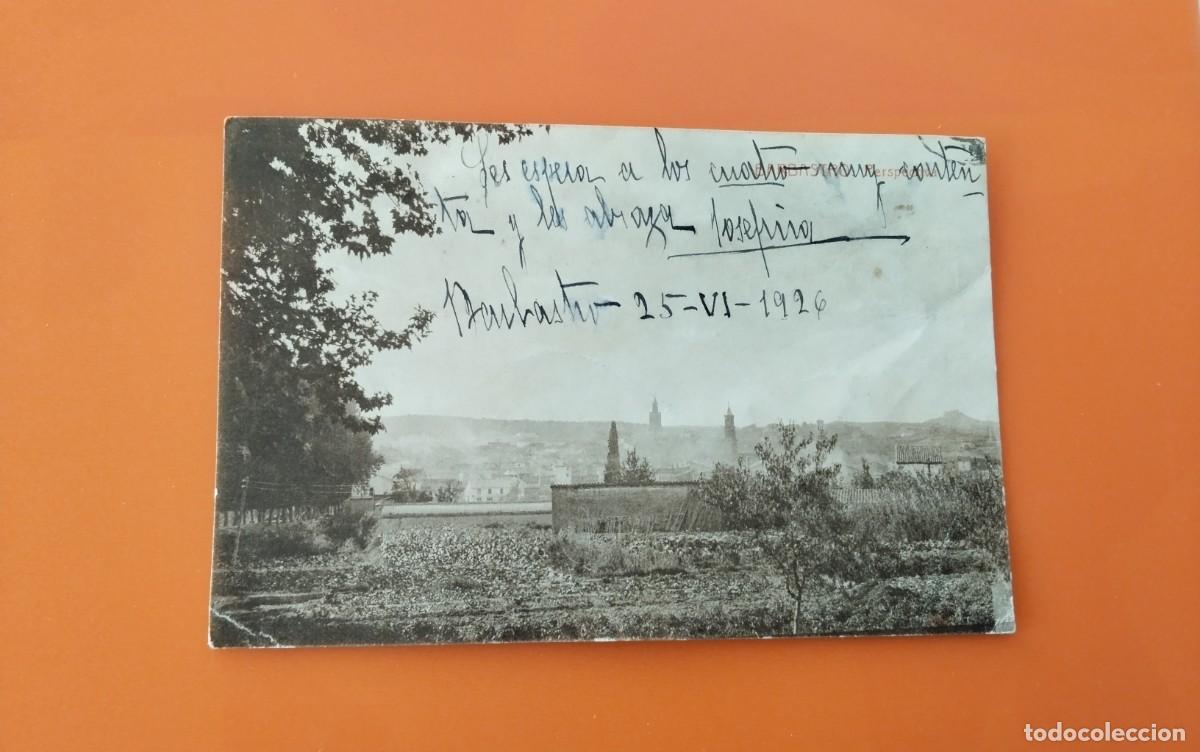 Les espera a los cuatro muy conten-
BARBASTRO. Perspectiva
ta y les abraza Josefina
Barbastro 25-VI-1926
todocoleccion